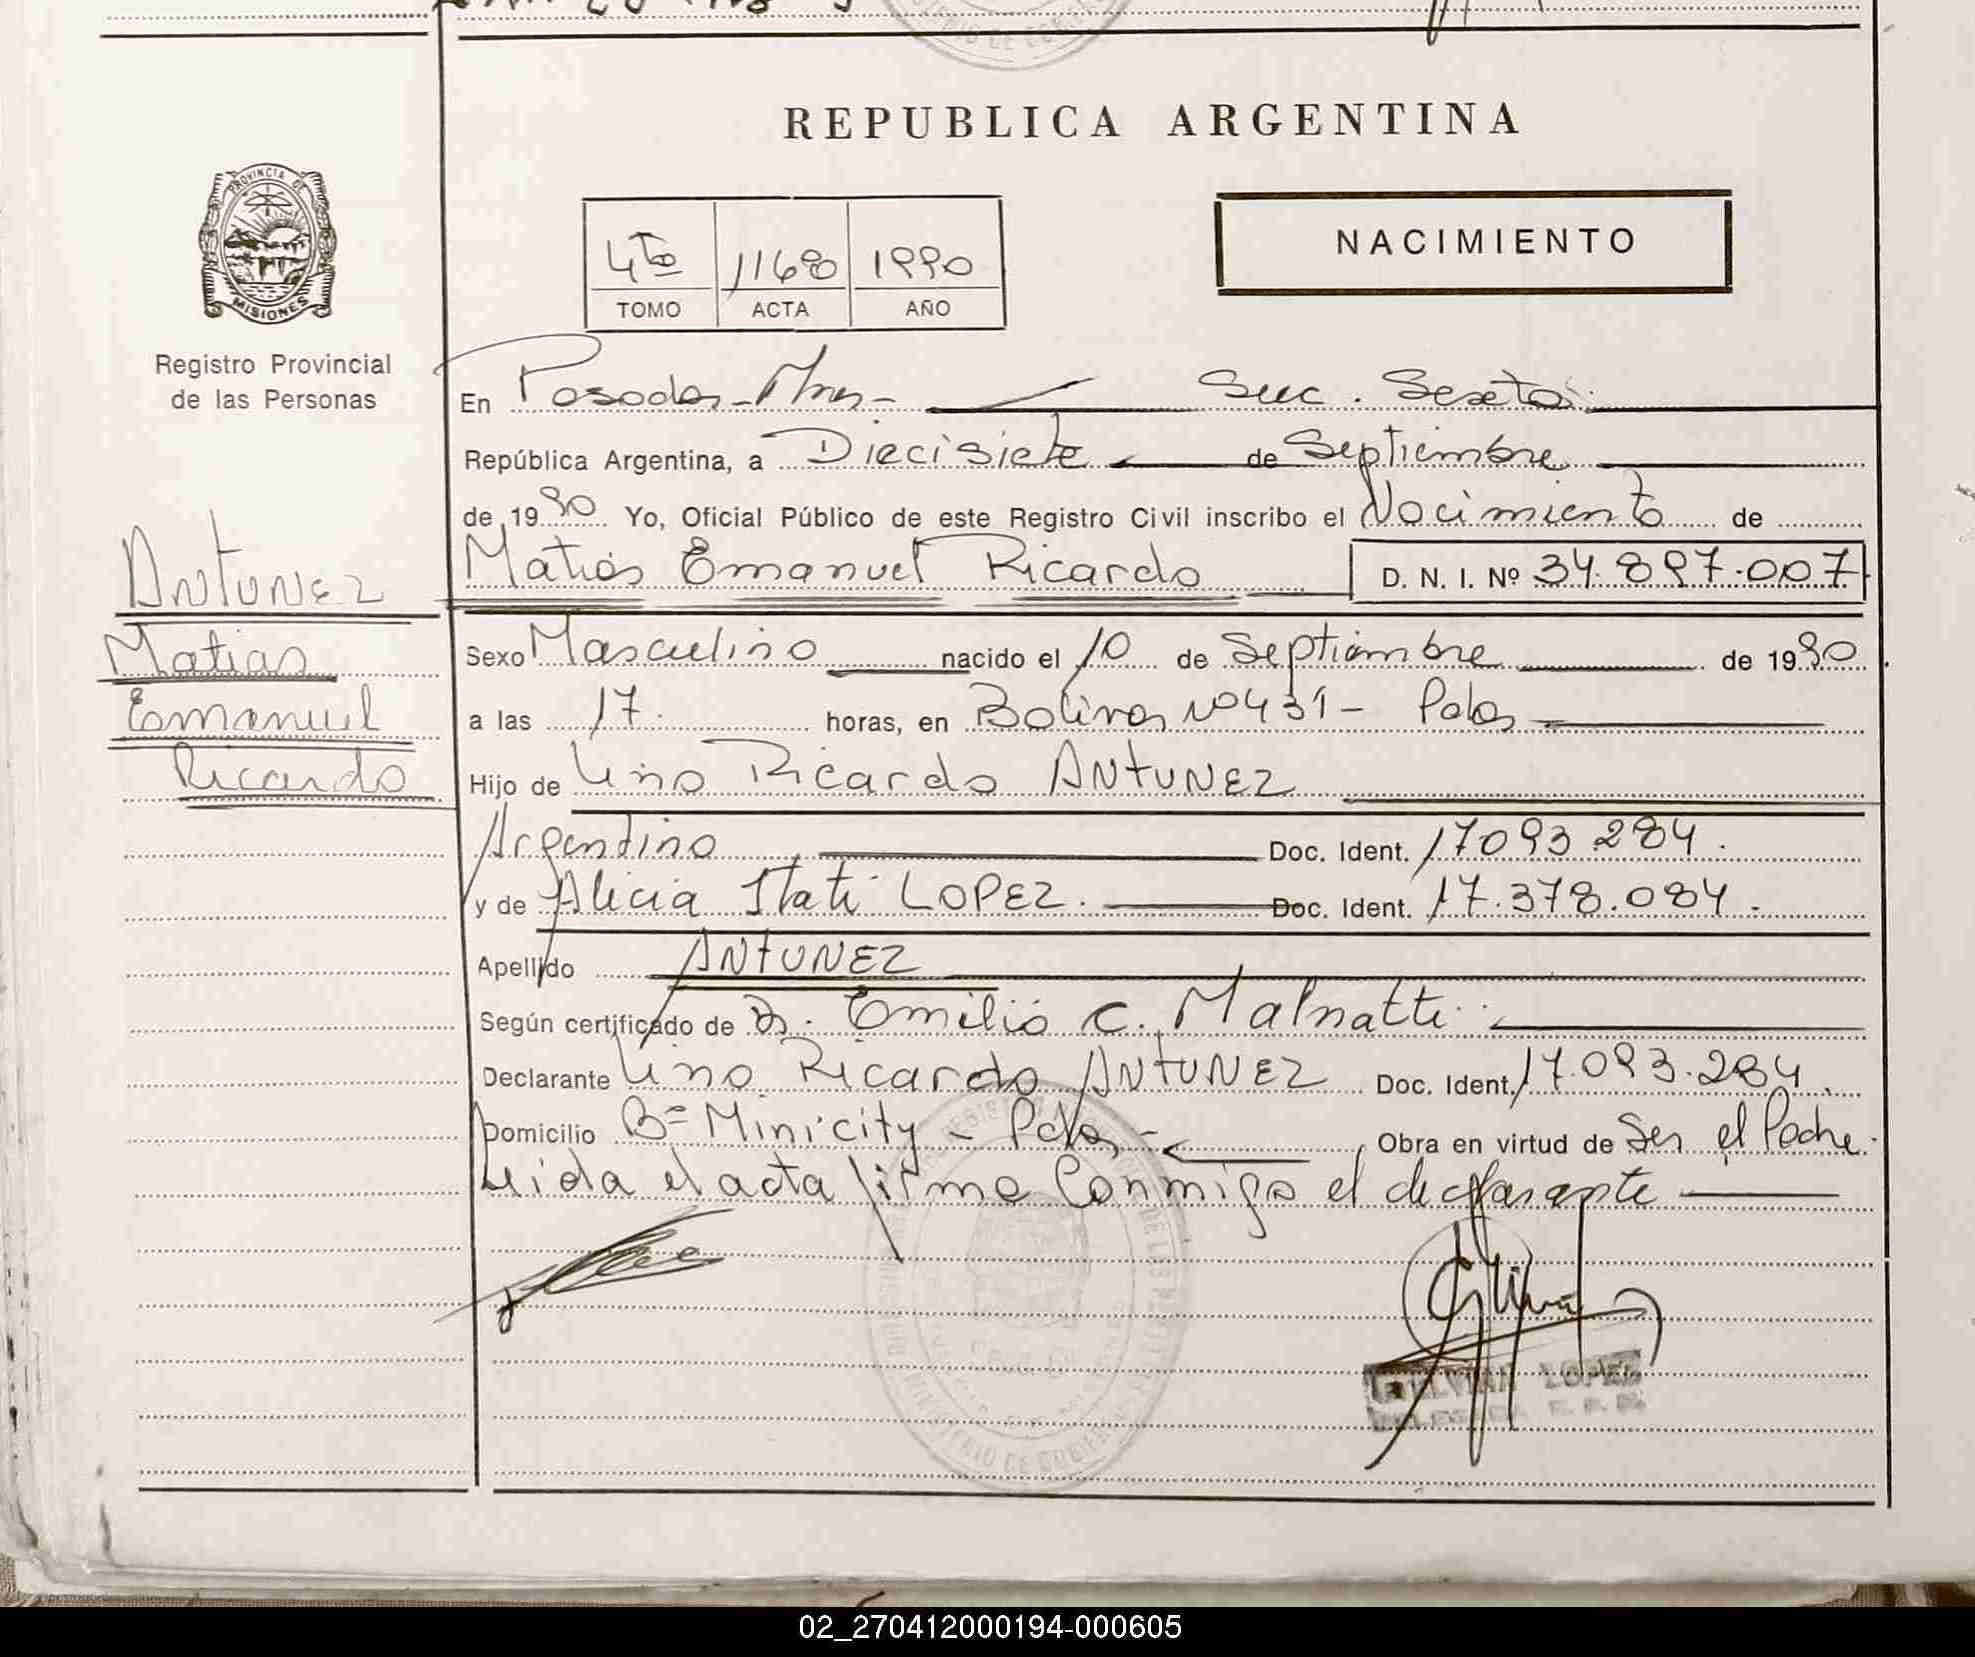 REPUBLICA ARGENTINA
PROVINCIA DE
MISIONES
Registro Provincial
de las Personas
4to 1168 1990
TOMO ACTA AÑO
NACIMIENTO
En Posadas - Mnes - Secc. Sexta
República Argentina, a Diecisiete de Septiembre
de 1990 Yo, Oficial Público de este Registro Civil inscribo el Nacimiento de
Matias Emanuel Ricardo D. N. I. Nº 34.897.007
ANTUNEZ
Matias
Emanuel
Ricardo
Sexo Masculino nacido el 10 de Septiembre de 1990
a las 17 horas, en Bolivar Nº 431 - Pdas
Hijo de Lino Ricardo ANTUNEZ
Argentino Doc. Ident. 17093.284.
y de Alicia Itati LOPEZ. Doc. Ident. 17.378.084.
Apellido ANTUNEZ
Según certificado de Dr. Emilio C. Malnatti
Declarante Lino Ricardo ANTUNEZ Doc. Ident. 17.093.284.
Domicilio Bº Minicity - Pdas - Obra en virtud de Ser el Padre.
Leida el acta firma Conmigo el declarante
LOPEZ
02_270412000194-000605